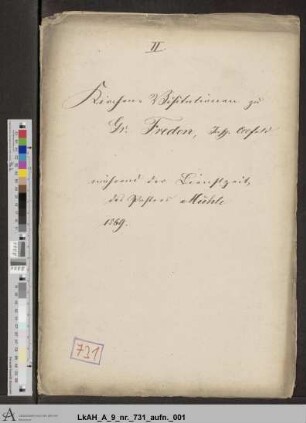 II
Kirchen-Visitationen zu
Gr. Freden, Insp. Alfeld
während der Dienstzeit
des Pastors Mühle
1869.
731
LkAH_A_9_nr._731_aufn._001